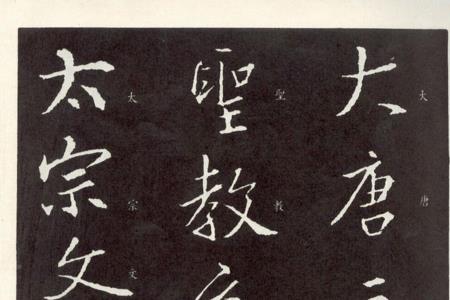 大唐
大唐
聖教
聖教
太宗文
太宗文